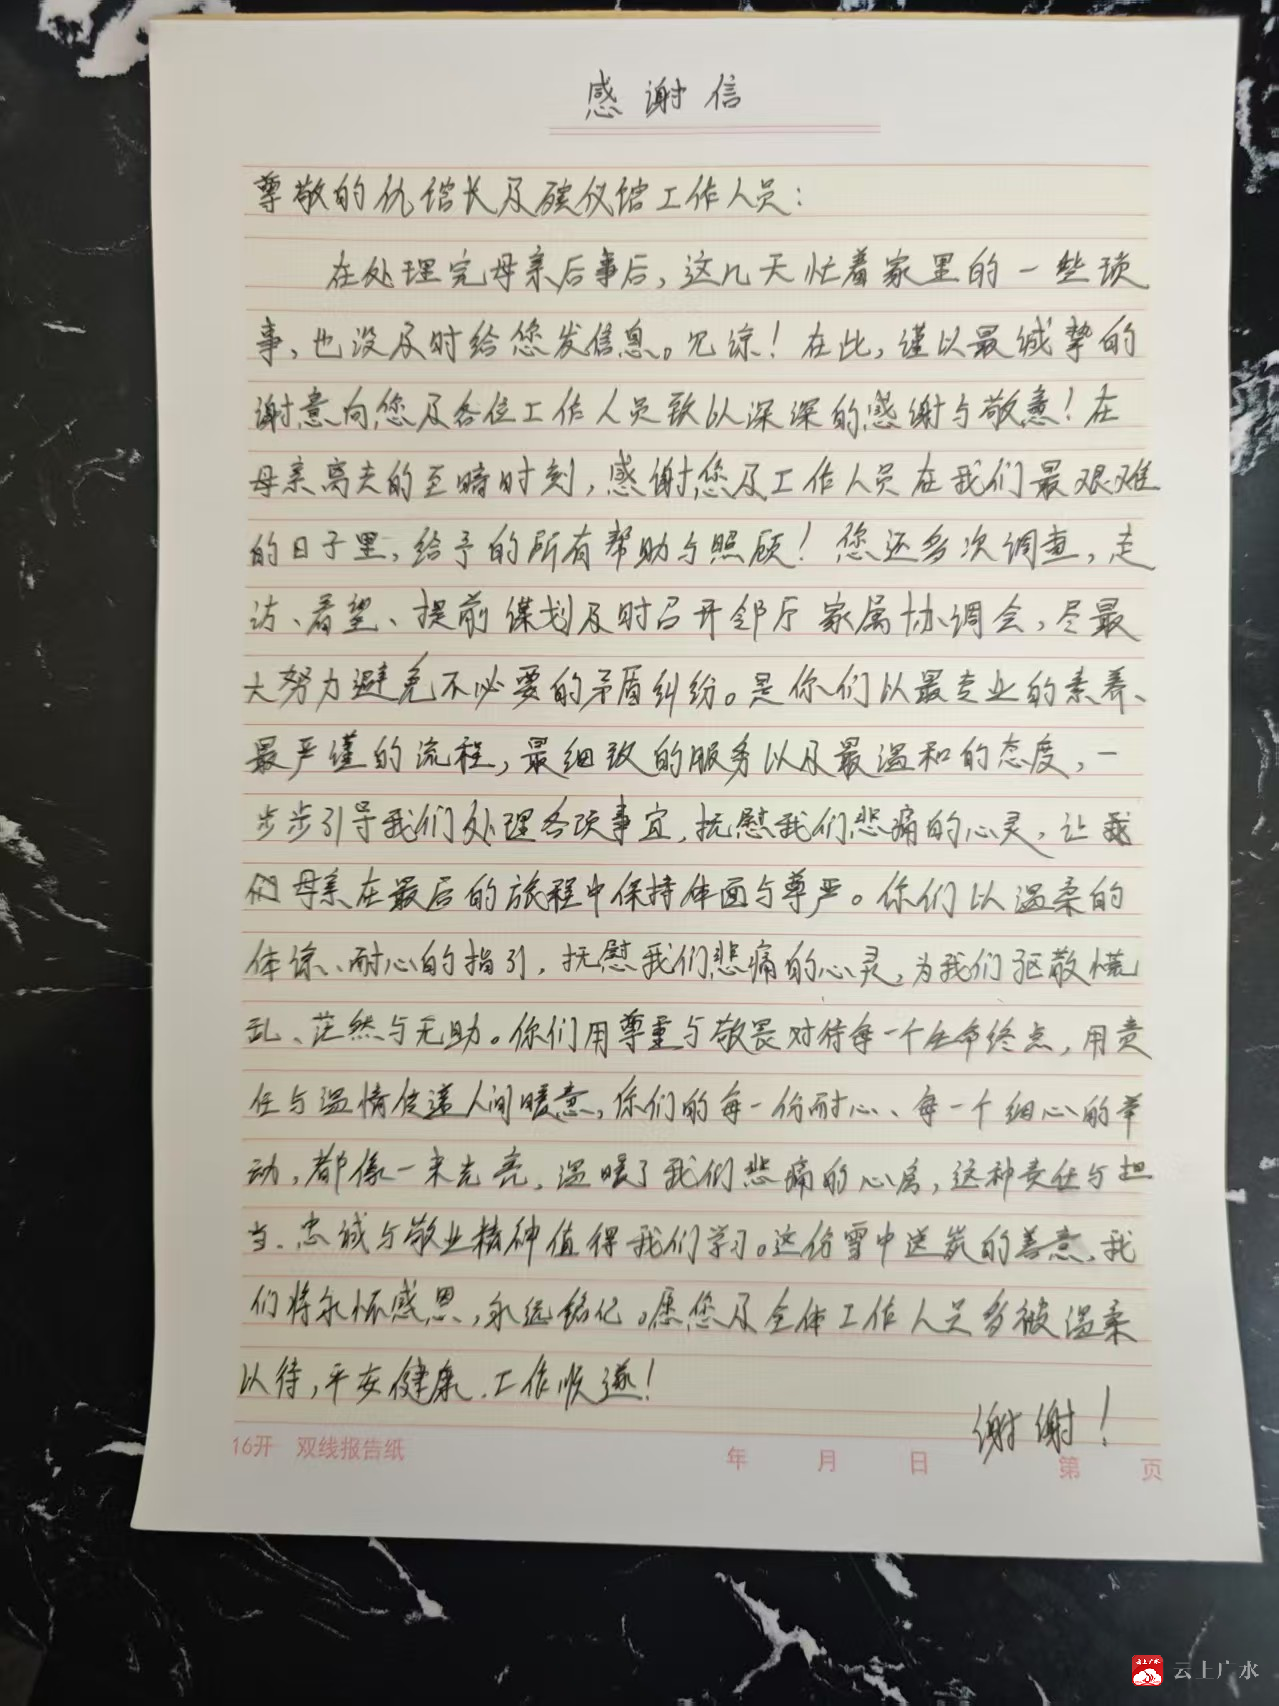 感谢信
尊敬的仇馆长及殡仪馆工作人员：
在处理完母亲后事后，这几天忙着家里的一些琐
事，也没及时给您发信息。见谅！在此，谨以最诚挚的
谢意向您及各位工作人员致以深深的感谢与敬意！在
母亲离去的至暗时刻，感谢您及工作人员在我们最艰难
的日子里，给予的所有帮助与照顾！您还多次调查，走
访、看望、提前谋划及时召开邻厅家属协调会，尽最
大努力避免不必要的矛盾纠纷。是你们以最专业的素养、
最严谨的流程，最细致的服务以及最温和的态度，一
步步引导我们处理各项事宜，抚慰我们悲痛的心灵，让我
们母亲在最后的旅程中保持体面与尊严。你们以温柔的
体谅、耐心的指引，抚慰我们悲痛的心灵，为我们驱散慌
乱、茫然与无助。你们用尊重与敬畏对待每一个生命终点，用责
任与温情传递人间暖意，你们的每一份耐心、每一个细心的举
动，都像一束光亮，温暖了我们悲痛的心房，这种责任与担
当、忠诚与敬业精神值得我们学习。这份雪中送炭的善意，我
们将永怀感恩，永远铭记。愿您及全体工作人员多被温柔
以待，平安健康，工作顺遂！
谢谢！
16开 双线报告纸 年 月 日 第 页
云上广水